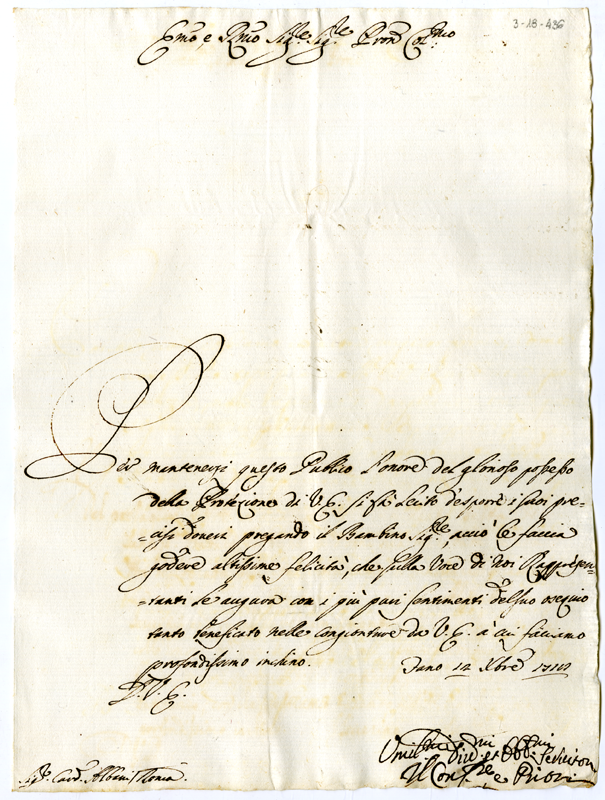 3-18-436
Emo, e Rmo Sigle Sigle Pron Colmo
Per mantenersi questo Publico l'onore del glorioso possesso
della Protezione di V. E. si fà lecito d'esporre i suoi pre-
=cisi doveri pregando il Bambino Sigre acciò le faccia
godere altissime felicità, che sulla voce di noi Rappresen-
=tanti le augura con i più puri sentimenti del suo ossequio
tanto beneficato nelle congionture da V. E. a cui facciamo
profondissimo inchino. Fano 12 Xbre
D. V. E.
Sigr. Card. Albani Roma
Umilmi Divmi et Obbmi Servitori
Il Confre e Priori